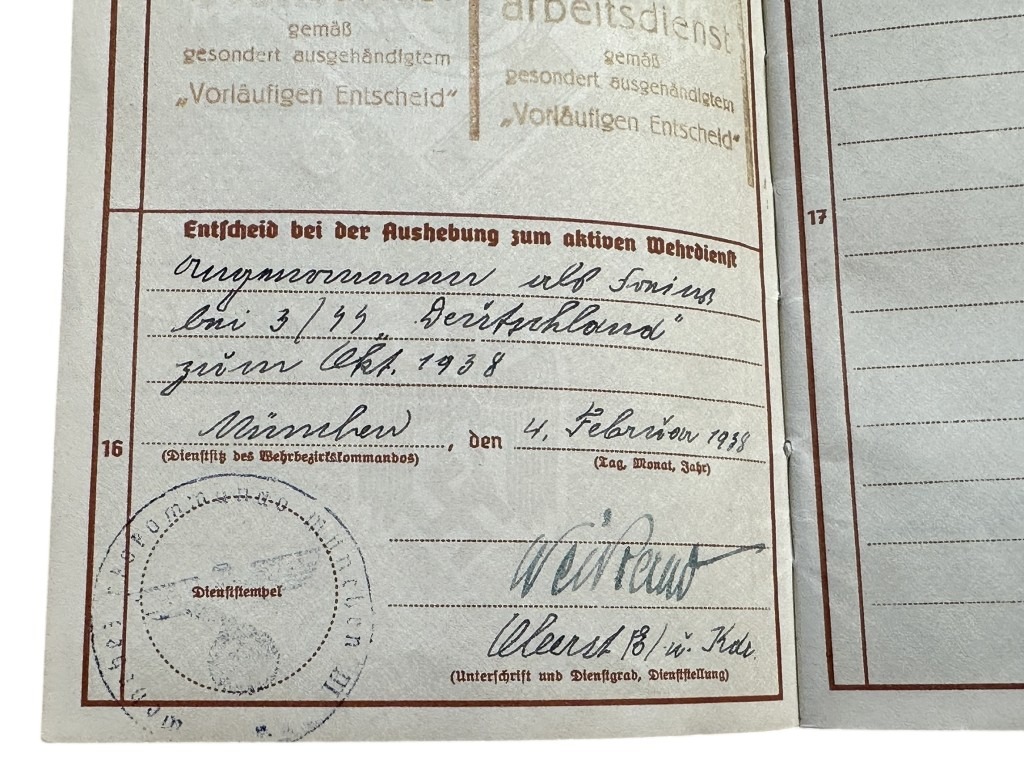 gemäß
gesondert ausgehändigtem
„Vorläufigen Entscheid"
arbeitsdienst
gemäß
gesondert ausgehändigtem
„Vorläufigen Entscheid"
Entscheid bei der Aushebung zum aktiven Wehrdienst
angenommen als Freiw.
bei 3/SS „Deutschland"
zum Okt. 1938
16
München, den 4. Februar 1938
(Dienstsitz des Wehrbezirkskommandos) (Tag, Monat, Jahr)
Dienststempel
Oberst (E) u. Kdr.
(Unterschrift und Dienstgrad, Dienststellung)
17